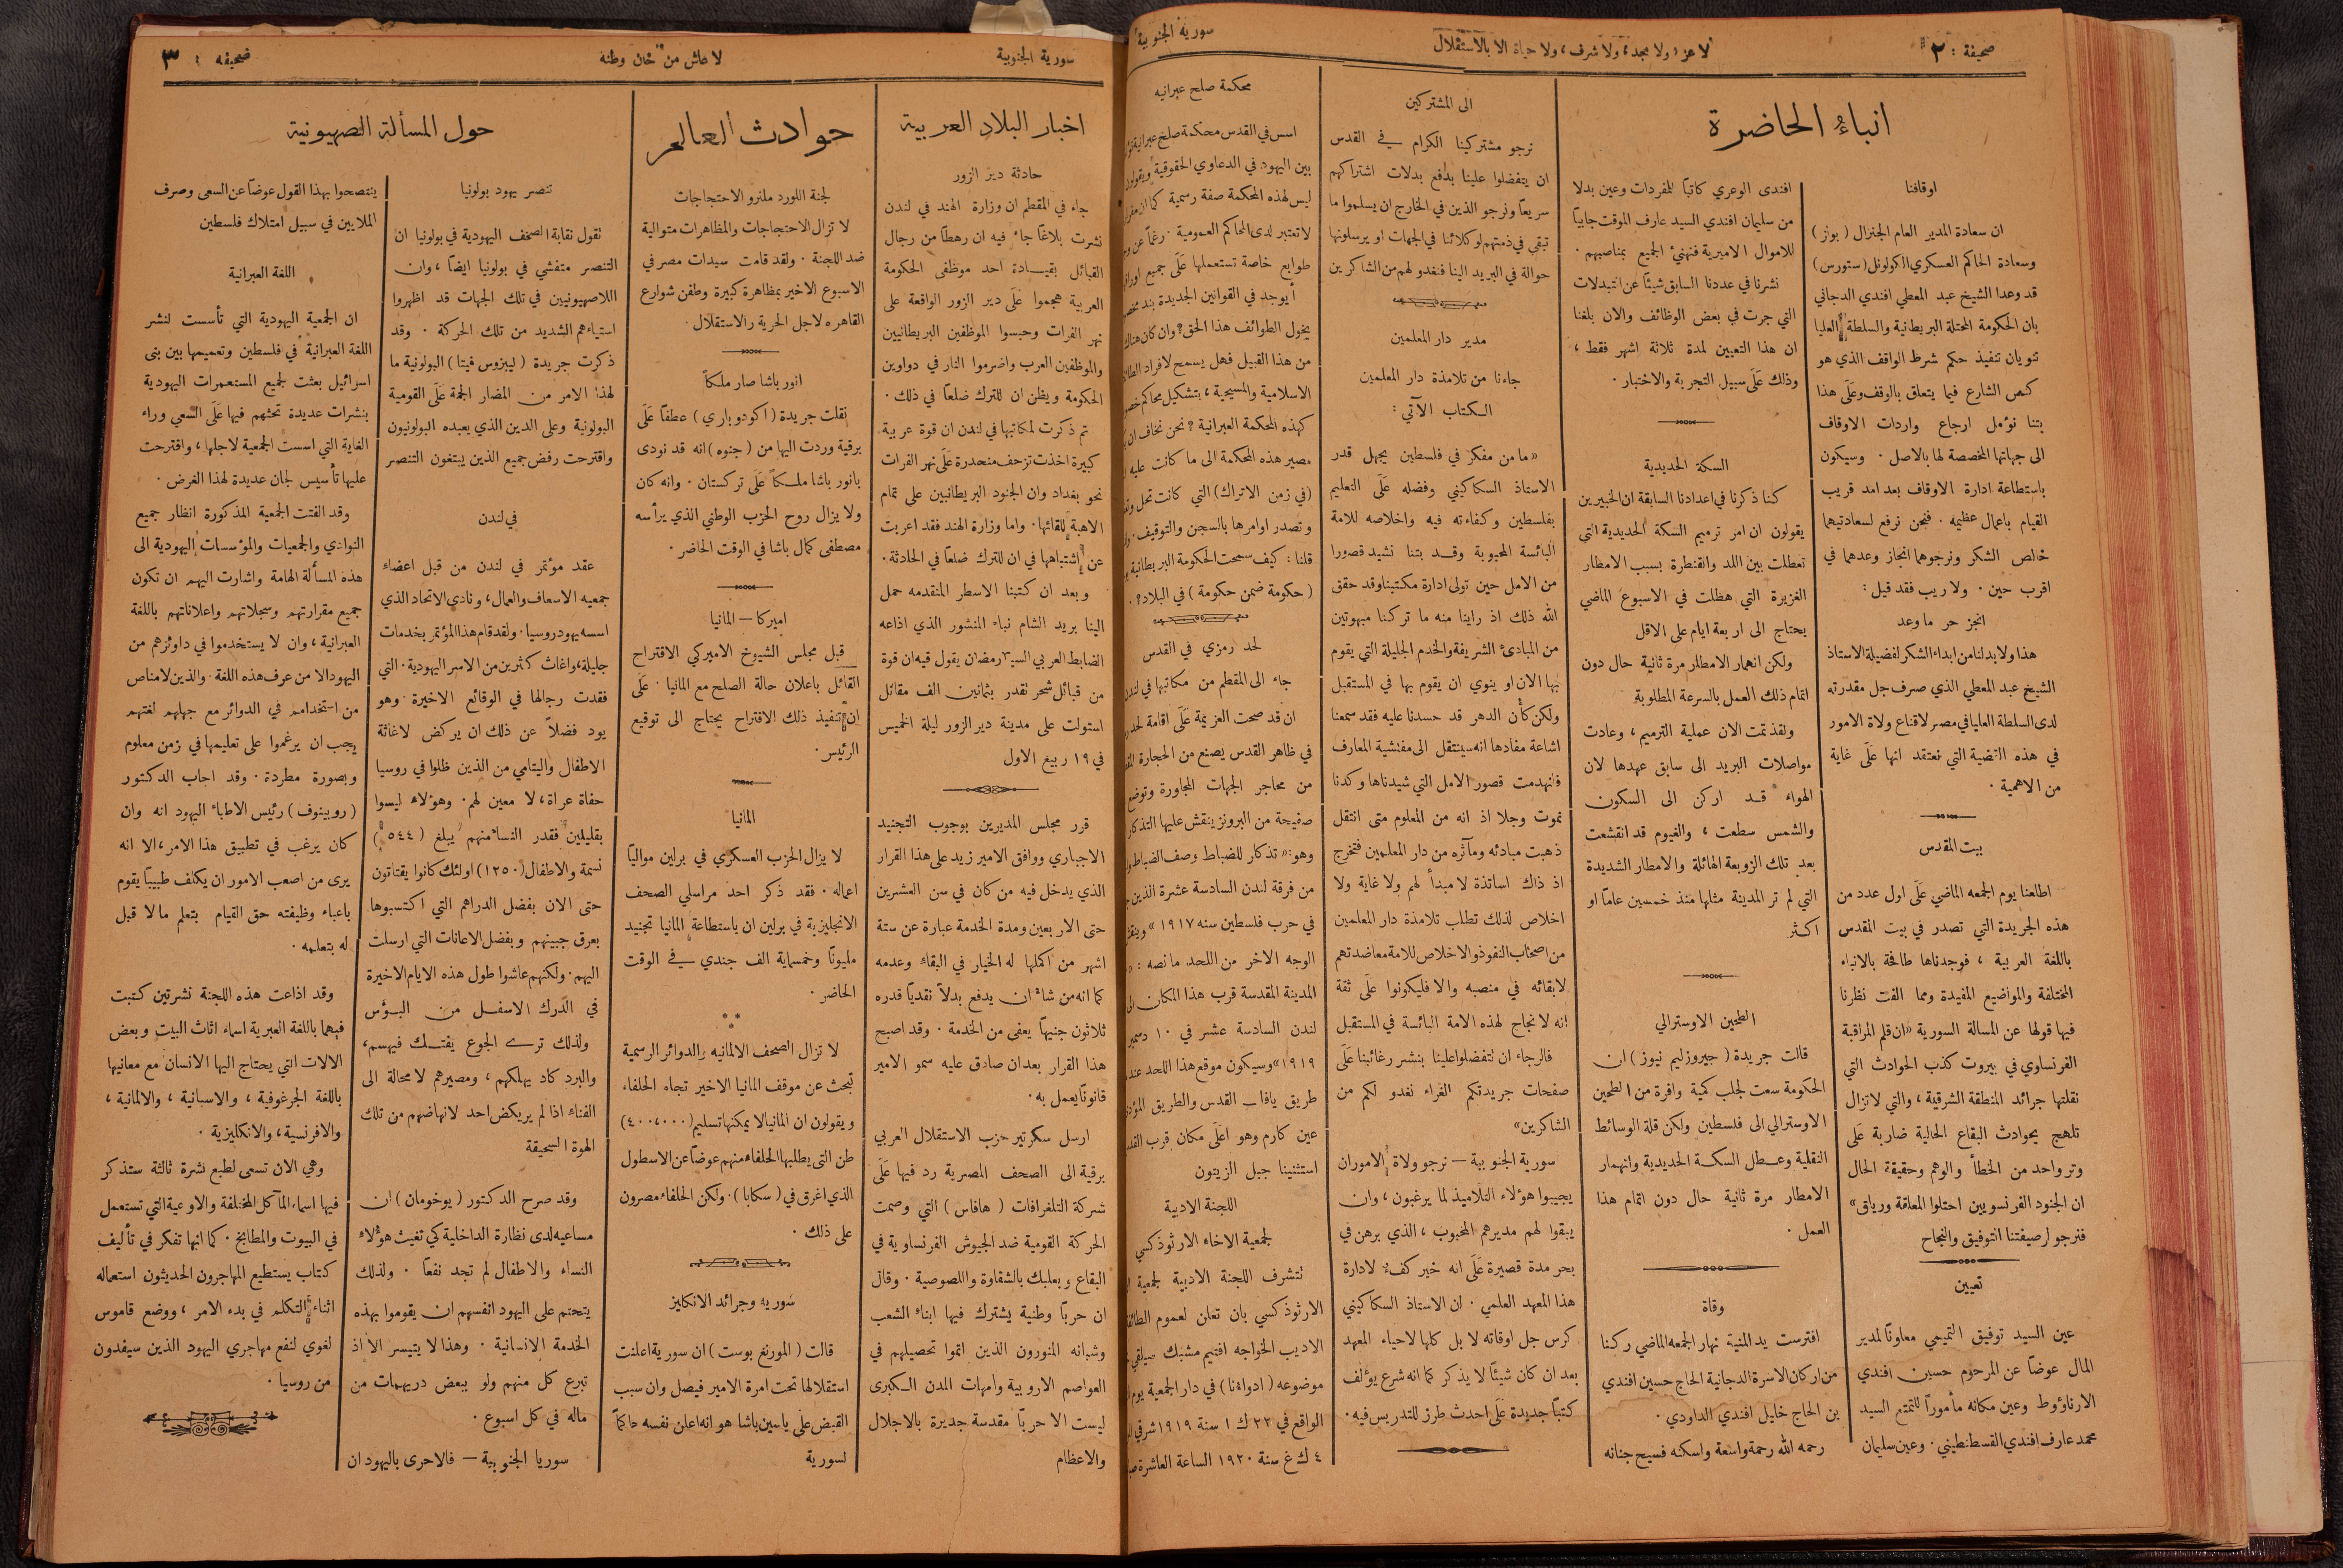 صحيفة : ٢
لا عز ، ولا مجد ، ولا شرف ، ولا حياة الا بالاستقلال
سورية الجنوبية
انباء الحاضرة
اوقافنا
ان سعادة المدير العام الجنرال ( بولز )
وسعادة الحاكم العسكري الكولونل ( ستورس )
قد وعدا الشيخ عبد المعطي افندي الدجاني
بان الحكومة المحتلة البريطانية والسلطة العليا
تنويان تنفيذ حكم شرط الواقف الذي هو
كنص الشارع فيما يتعلق بالوقف وعلى هذا
بتنا نؤمل ارجاع واردات الاوقاف
الى جهاتها المخصصة لها بالاصل . وسيكون
باستطاعة ادارة الاوقاف بعد امد قريب
القيام باعمال عظيمه . فنحن نرفع لسعادتيهما
خالص الشكر ونرجوهما انجاز وعدهما في
اقرب حين . ولا ريب فقد قيل :
انجز حر ما وعد
هذا ولا بد لنا من ابداء الشكر لفضيلة الاستاذ
الشيخ عبد المعطي الذي صرف جل مقدرته
لدى السلطة العليا في مصر لاقناع ولاة الامور
في هذه القضية التي نعتقد انها على غاية
من الاهمية .
بيت المقدس
اطلعنا يوم الجمعه الماضي على اول عدد من
هذه الجريدة التي تصدر في بيت المقدس
باللغة العربية ، فوجدناها طافحة بالانباء
المختلفة والمواضيع المفيدة ومما الفت نظرنا
فيها قولها عن المسالة السورية «ان قلم المراقبة
الفرنساوي في بيروت كذب الحوادث التي
نقلتها جرائد المنطقة الشرقية ، والتي لا تزال
تلهج بحوادث البقاع الحالية ضاربة على
وتر واحد من الخطأ والوهم وحقيقة الحال
ان الجنود الفرنسويين احتلوا المعلقة ورياق»
فنرجو لرصيفتنا التوفيق والنجاح
تعيين
عين السيد توفيق التميمي معاونًا لمدير
المال عوضًا عن المرحوم حسين افندي
الارناؤوط وعين مكانه مأمورًا للتمتع السيد
محمد عارف افندي القسطنطيني . وعين سليمان
افندى الوعري كاتبًا للمفردات وعين بدلا
من سليمان افندي السيد عارف الموقت جابيًا
للاموال الاميرية فنهنئ الجميع بمناصبهم .
نشرنا في عددنا السابق شيئًا عن التبدلات
التي جرت في بعض الوظائف والان بلغنا
ان هذا التعيين لمدة ثلاثة اشهر فقط ،
وذلك على سبيل التجربة والاختبار .
السكة الحديدية
كنا ذكرنا في اعدادنا السابقة ان الخبيرين
يقولون ان امر ترميم السكة الحديدية التي
تعطلت بين اللد والقنطرة بسبب الامطار
الغزيرة التي هطلت في الاسبوع الماضي
يحتاج الى اربعة ايام على الاقل
ولكن انهمار الامطار مرة ثانية حال دون
اتمام ذلك العمل بالسرعة المطلوبة
ولقد تمت الان عملية الترميم ، وعادت
مواصلات البريد الى سابق عهدها لان
الهواء قد اركن الى السكون
والشمس سطعت ، والغيوم قد انقشعت
بعد تلك الزوبعة الهائلة والامطار الشديدة
التي لم تر المدينة مثلها منذ خمسين عامًا او
اكثر
الطحين الاوسترالي
قالت جريدة ( جيروزليم نيوز ) ان
الحكومة سعت لجلب كمية وافرة من الطحين
الاوسترالي الى فلسطين ولكن قلة الوسائط
النقلية وعطل السكة الحديدية وانهمار
الامطار مرة ثانية حال دون اتمام هذا
العمل .
وفاة
افترست يد المنية نهار الجمعه الماضي ركنا
من اركان الاسرة الدجانية الحاج حسين افندي
بن الحاج خليل افندي الداودي .
رحمه الله رحمة واسعة واسكنه فسيح جنانه
الى المشتركين
نرجو مشتركينا الكرام في القدس
ان يتفضلوا علينا بدفع بدلات اشتراكهم
سريعًا ونرجو الذين في الخارج ان يسلموا ما
تبقى في ذمتهم لوكلائنا في الجهات او يرسلونها
حوالة في البريد الينا فنغدو لهم من الشاكرين
مدير دار المعلمين
جاءنا من تلامذة دار المعلمين
الكتاب الآتي :
«ما من مفكر في فلسطين يجهل قدر
الاستاذ السكاكيني وفضله على التعليم
بفلسطين وكفاءته فيه واخلاصه للامة
البائسة المحبوبة وقد بتنا نشيد قصورا
من الامل حين تولى ادارة مكتبنا وقد حقق
الله ذلك اذ راينا منه ما تركنا مبهوتين
من المبادئ الشريفة والخدم الجليلة التي يقوم
بها الان او ينوي ان يقوم بها في المستقبل
ولكن كأن الدهر قد حسدنا عليه فقد سمعنا
اشاعة مفادها انه سينتقل الى مفتشية المعارف
فانهدمت قصور الامل التي شيدناها وكدنا
نموت وجلا اذ انه من المعلوم متى انتقل
ذهبت مبادئه ومآثره من دار المعلمين فتخرج
اذ ذاك اساتذة لا مبدأ لهم ولا غاية ولا
اخلاص لذلك تطلب تلامذة دار المعلمين
من اصحاب النفوذ والاخلاص للامة معاضدتهم
لابقائه في منصبه والا فليكونوا على ثقة
انه لا نجاح لهذه الامة البائسة في المستقبل
فالرجاء ان تتفضلوا علينا بنشر رغائبنا على
صفحات جريدتكم الغراء نغدو لكم من
الشاكرين»
سورية الجنوبية — نرجو ولاة الامور ان
يجيبوا هؤلاء التلاميذ لما يرغبون ، وان
يبقوا لهم مديرهم المحبوب ، الذي برهن في
بحر مدة قصيرة على انه خير كفء لادارة
هذا المعهد العلمي . ان الاستاذ السكاكيني
كرس جل اوقاته لا بل كلها لاحياء المعهد
بعد ان كان شيئًا لا يذكر كما انه شرع يؤلف
كتبًا جديدة على احدث طرز للتدريس فيه .
محكمة صلح عبرانيه
اسس في القدس محكمة صلح عبرانية
بين اليهود في الدعاوي الحقوقية ويقولون
ليس لهذه المحكمة صفة رسمية كما ان
لا تعتبر لدى المحاكم العمومية . رغمًا عن
طوابع خاصة تستعملها على جميع
أيوجد في القوانين الجديدة بند
يخول الطوائف هذا الحق ؟ وان كان هناك
من هذا القبيل فهل يسمح لافراد
الاسلامية والمسيحية ، بتشكيل محاكم
كهذه المحكمة العبرانية ؟ نحن نخاف ان
مصير هذه المحكمة الى ما كانت عليه
(في زمن الاتراك) التي كانت تحل
وتصدر اوامرها بالسجن والتوقيف .
قلنا : كيف سمحت الحكومة البريطانية
( حكومة ضمن حكومة ) في البلاد؟ .
لحد رمزي في القدس
جاء الى المقطم من مكاتبها في لندن
ان قد صحت العزيمة على اقامة لحد
في ظاهر القدس يصنع من الحجارة
من محاجر الجهات المجاورة وتوضع
صفيحة من البرونز ينقش عليها التذكار
وهو : « تذكار للضباط وصف الضباط
من فرقة لندن السادسة عشرة الذين
في حرب فلسطين سنه ١٩١٧ »
الوجه الاخر من اللحد ما نصه : «
المدينة المقدسة قرب هذا المكان
لندن السادسة عشر في ١٠ دسمبر
١٩١٩» وسيكون موقع هذا اللحد عند
طريق يافا القدس والطريق
عين كارم وهو اعلى مكان قرب
استثنينا جبل الزيتون
اللجنة الادبية
لجمعية الاخاء الارثوذكسي
تتشرف اللجنة الادبية لجمعية
الارثوذكسي بان تعلن لعموم
الاديب الخواجه افتيم مشبك سيلقي
موضوعه ( ادواءنا ) في دار الجمعية يوم
الواقع في ٢٢ ك ١ سنة ١٩١٩ شرقي
٤ ك غ سنة ١٩٢٠ الساعة العاشرة
سورية الجنوبية
لا عاش من خان وطنه
صحيفه : ٣
اخبار البلاد العربية
حادثة دير الزور
جاء في المقطم ان وزارة الهند في لندن
نشرت بلاغًا جاء فيه ان رهطًا من رجال
القبائل بقيادة احد موظفي الحكومة
العربية هجموا على دير الزور الواقعة على
نهر الفرات وحبسوا الموظفين البريطانيين
والموظفين العرب واضرموا النار في دواوين
الحكومة ويظن ان للترك ضلعًا في ذلك .
ثم ذكرت لمكاتبها في لندن ان قوة عربية
كبيرة اخذت تزحف منحدرة على نهر الفرات
نحو بغداد وان الجنود البريطانيين على تمام
الاهبة للقائها . واما وزارة الهند فقد اعربت
عن اشتباهها في ان للترك ضلعًا في الحادثة .
وبعد ان كتبنا الاسطر المتقدمه حمل
الينا بريد الشام نباء المنشور الذي اذاعه
الضابط العربي السيد رمضان يقول فيه ان قوة
من قبائل شمر تقدر بثمانين الف مقاتل
استولت على مدينة دير الزور ليلة الخميس
في ١٩ ربيع الاول
قرر مجلس المديرين بوجوب التجنيد
الاجباري ووافق الامير زيد على هذا القرار
الذي يدخل فيه من كان في سن العشرين
حتى الاربعين ومدة الخدمة عبارة عن ستة
اشهر من اكملها له الخيار في البقاء وعدمه
كما انه من شاء ان يدفع بدلاً نقديًا قدره
ثلاثون جنيهًا يعفى من الخدمة . وقد اصبح
هذا القرار بعد ان صادق عليه سمو الامير
قانونًا يعمل به .
ارسل سكرتير حزب الاستقلال العربي
برقية الى الصحف المصرية رد فيها على
شركة التلغرافات ( هافاس ) التي وصمت
الحركة القومية ضد الجيوش الفرنساوية في
البقاع وبعلبك بالشقاوة واللصوصية . وقال
ان حربًا وطنية يشترك فيها ابناء الشعب
وشبانه المنورون الذين اتموا تحصيلهم في
العواصم الاروبية وامهات المدن الكبرى
ليست الا حربًا مقدسة جديرة بالاجلال
والاعظام
حوادث العالم
لجنة اللورد ملنر و الاحتجاجات
لا تزال الاحتجاجات والمظاهرات متوالية
ضد اللجنة . ولقد قامت سيدات مصر في
الاسبوع الاخير بمظاهرة كبيرة وطفن شوارع
القاهره لاجل الحرية والاستقلال .
انور باشا صار ملكاً
نقلت جريدة ( اكودوباري ) عطفًا على
برقية وردت اليها من ( جنوه ) انه قد نودى
بانور باشا ملكاً على تركستان . وانه كان
ولا يزال روح الحزب الوطني الذي يرأسه
مصطفى كمال باشا في الوقت الحاضر .
اميركا — المانيا
قبل مجلس الشيوخ الاميركي الاقتراح
القائل باعلان حالة الصلح مع المانيا . على
ان تنفيذ ذلك الاقتراح يحتاج الى توقيع
الرئيس .
المانيا
لا يزال الحزب العسكري في براين مواليًا
اعماله . فقد ذكر احد مراسلي الصحف
الانجليزية في برلين ان باستطاعة المانيا تجنيد
مليونًا وخمسماية الف جندي في الوقت
الحاضر .
لا تزال الصحف الالمانيه والدوائر الرسمية
تبحث عن موقف المانيا الاخير تجاه الحلفاء
ويقولون ان المانيا لا يمكنها تسليم (٤٠٠،٠٠٠)
طن التى يطلبها الحلفاء منهم عوضًا عن الاسطول
الذي اغرق في ( سكابا ) . ولكن الحلفاء مصرون
على ذلك .
سوريه وجرائد الانكليز
قالت ( المورنغ بوست ) ان سورية اعلنت
استقلالها تحت امرة الامير فيصل وان سبب
القبض على ياسين باشا هو انه اعلن نفسه حاكمًا
لسورية
حول المسألة الصهيونية
تنصر يهود بولونيا
تقول نقابة الصحف اليهودية في بولونيا ان
التنصر متفشي في بولونيا ايضًا ، وان
اللاصهيونيين في تلك الجهات قد اظهروا
استياءهم الشديد من تلك الحركة . وقد
ذكرت جريدة ( ليبزوس فيتا ) البولونية ما
لهذا الامر من المضار الجمة على القومية
البولونية وعلى الدين الذي يعبده البولونيون
واقترحت رفض جميع الذين يبتغون التنصر
في لندن
عقد مؤتمر في لندن من قبل اعضاء
جمعيه الاسعاف والعمال ، ونادي الاتحاد الذي
اسسه يهود روسيا . ولقد قام هذا المؤتمر بخدمات
جليلة ، واغاث كثيرين من الاسر اليهودية . التي
فقدت رجالها في الوقائع الاخيرة . وهو
يود فضلاً عن ذلك ان يركض لاغاثة
الاطفال واليتامي من الذين ظلوا في روسيا
حفاة عراة ، لا معين لهم . وهؤلاء ليسوا
بقليلين فقدر النساء منهم يبلغ ( ٥٤٤ )
نسمة والاطفال ( ١٢٥٠ ) اولئك كانوا يقتاتون
حتى الان بفضل الدراهم التي اكتسبوها
بعرق جبينهم وبفضل الاعانات التي ارسلت
اليهم . ولكنهم عاشوا طول هذه الايام الاخيرة
في الدرك الاسفل من البؤس
ولذلك ترى الجوع يفتك فيهم ،
والبرد كاد يهلكهم ، ومصيرهم لا محالة الى
الفناء اذا لم يركض احد لانهاضهم من تلك
الهوة السحيقة
وقد صرح الدكتور ( يوخومان ) ان
مساعيه لدى نظارة الداخلية كي تغيث هؤلاء
النساء والاطفال لم تجد نفعًا . ولذلك
يتحتم على اليهود انفسهم ان يقوموا بهذه
الخدمة الانسانية . وهذا لا يتيسر الا اذ
تبرع كل منهم ولو ببعض دريهمات من
ماله في كل اسبوع .
سوريا الجنوبية — فالاحرى باليهود ان
ينتصحوا بهذا القول عوضًا عن السعى وصرف
الملايين في سبيل امتلاك فلسطين
اللغة العبرانية
ان الجمعية اليهودية التي تأسست لنشر
اللغة العبرانية في فلسطين وتعميمها بين بنى
اسرائيل بعثت لجميع المستعمرات اليهودية
بنشرات عديدة تحثهم فيها على السعي وراء
الغاية التي اسست الجمعية لاجلها ، واقترحت
عليها تأسيس لجان عديدة لهذا الغرض .
وقد الفتت الجمعية المذكورة انظار جميع
النوادي والجمعيات والمؤسسات اليهودية الى
هذه المسألة الهامة واشارت اليهم ان تكون
جميع مقرارتهم وسجلاتهم واعلاناتهم باللغة
العبرانية ، وان لا يستخدموا في دوائرهم من
اليهود الا من عرف هذه اللغة . والذين لا مناص
من استخدامهم في الدوائر مع جهلهم لغتهم
يجب ان يرغموا على تعليمها في زمن معلوم
وبصورة مطردة . وقد اجاب الدكتور
( روبينوف ) رئيس الاطباء اليهود انه وان
كان يرغب في تطبيق هذا الامر ، الا انه
يرى من اصعب الامور ان يكلف طبيبًا يقوم
باعباء وظيفته حق القيام بتعلم ما لا قبل
له بتعلمه .
وقد اذاعت هذه اللجنة نشرتين كتبت
فيهما باللغة العبرية اسماء اثاث البيت وبعض
الالات التي يحتاج اليها الانسان مع معانيها
باللغة الجرغوفية ، والاسبانية ، والالمانية ،
والافرنسية ، والانكليزية .
وهي الان تسعى لطبع نشرة ثالثة ستذكر
فيها اسماء المآكل المختلفة والاوعية التي تستعمل
في البيوت والمطابخ . كما انها تفكر في تأليف
كتاب يستطيع المهاجرون الحديثون استعماله
اثناء التكلم في بدء الامر ، ووضع قاموس
لغوي لنفع مهاجري اليهود الذين سيفدون
من روسيا .